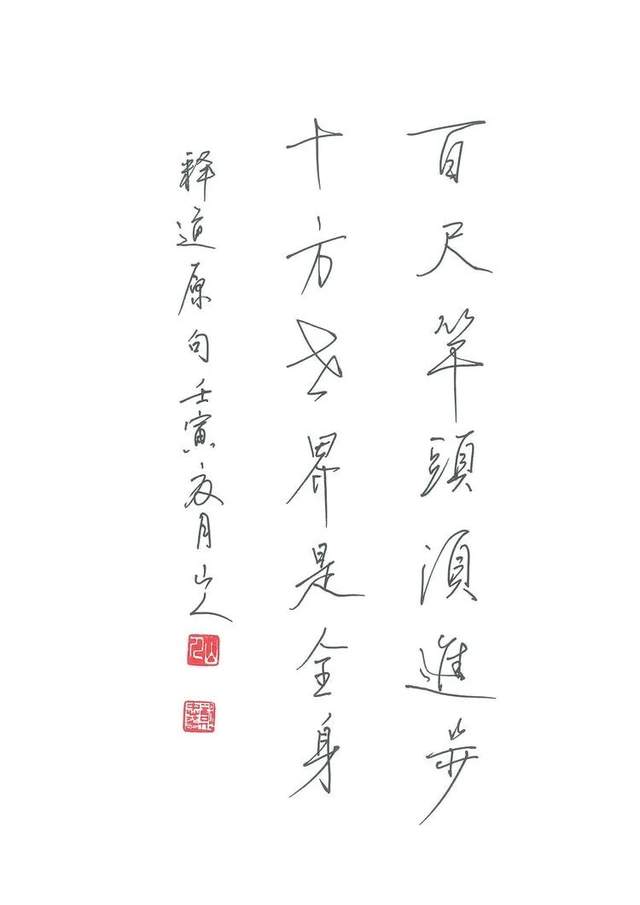 百尺竿頭須進步
十方世界是全身
释道原句壬寅夏月山人
山人